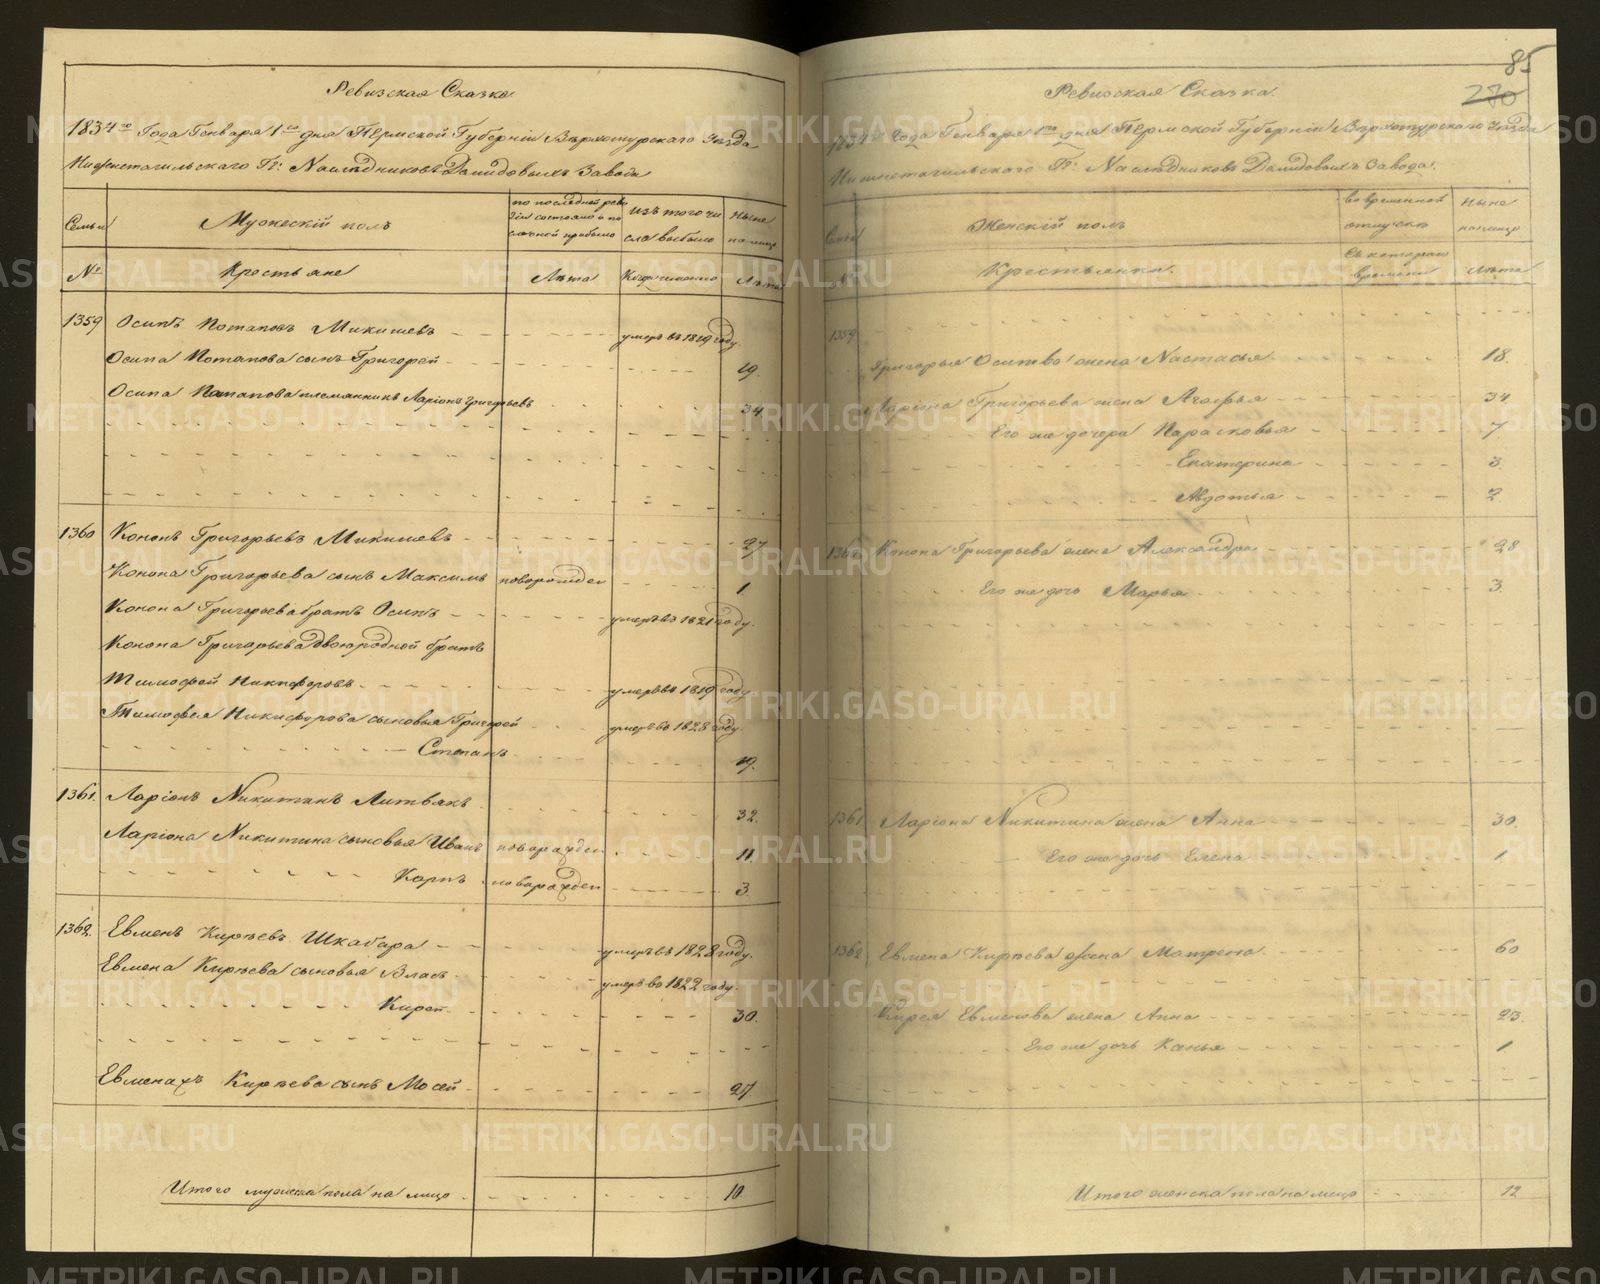 Ревизская Сказка
1834го Года Генваря 1го дня Пермской Губерніи Верхотурскаго Уезда
Нижнетагильскаго Гг: Наследниковъ Демидовыхъ Завода
Семьи
Мужескій полъ
по последней реви
зіи состояло и по
слочной прибыло
Изъ того чи
сла выбыло
Ныне
на лицо
№
Крестьяне
Лета
Когда именно
Лета
1359 Осипъ Потаповъ Микишевъ умеръ въ 1819 году.
Осипа Потапова сынъ Григорей 19.
Осипа Потапова племянникъ Ларіонъ Григорьевъ 34
1360 Кононъ Григорьевъ Микишевъ 27
Конона Григорьева сынъ Максимъ новорожден 1
Конона Григорьева братъ Осипъ умеръ въ 1821 году.
Конона Григорьева двоюродной братъ
Тимофей Никифоровъ умеръ въ 1819 году
Тимофея Никифорова сыновья Григорей умеръ въ 1828 году.
Степанъ 19.
1361. Ларіонъ Никитинъ Литвякъ 32.
Ларіона Никитина сыновья Иванъ новорожден 11.
Карпъ новорожден 3.
1362. Евменъ Киреевъ Шкабара умеръ въ 1828 году.
Евмена Киреева сыновья Власъ умеръ во 1822 году.
Кирей 30.
Евмена жъ Киреева сынъ Мосей 27.
Итого мужеска пола на лицо 10
85
270
Ревизская Сказка
1834го Года Генваря 1го дня Пермской Губерніи Верхотурскаго Уезда
Нижнетагильскаго Гг: Наследниковъ Демидовыхъ Завода.
Семьи
Женскій полъ
во временной
отлучке
Ныне
на лицо
№
Крестьянки.
Съ котораго
времени
Лета
1359
Григорья Осипова жена Настасья 18.
Ларіона Григорьева жена Агафья 34
Его же дочери Парасковья 7
Екатерина 3.
Авдотья 2.
1360 Конона Григорьева жена Александра 28
Его же дочь Марья 3.
1361 Ларіона Никитина жена Анна 30.
Его же дочь Елена 1
1362 Евмена Киреева жена Матрена 60
Кирея Евменова жена Анна 23.
Его же дочь Ксенья 1
Итого женска пола на лицо 12
METRIKI.GASO-URAL.RU